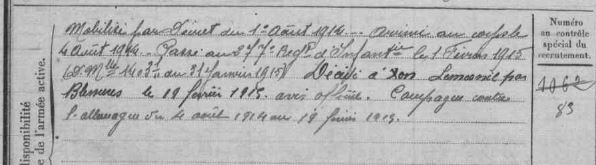 Mobilisé par Décret du 1er Août 1914. arrivé au corps le
4 Août 1914. Passé au 277e Regt d'Infanterie le 1 Février 1915
(D. Mlle 14035 du 31 Janvier 1915) Décédé à
Blessures le 19 février 1915. avis officiel. Campagne contre
l'allemagne du 4 août 1914 au 19 février 1915.
Numéro
au contrôle
spécial du
recrutement.
1062
83
disponibilité
de l'armée active.